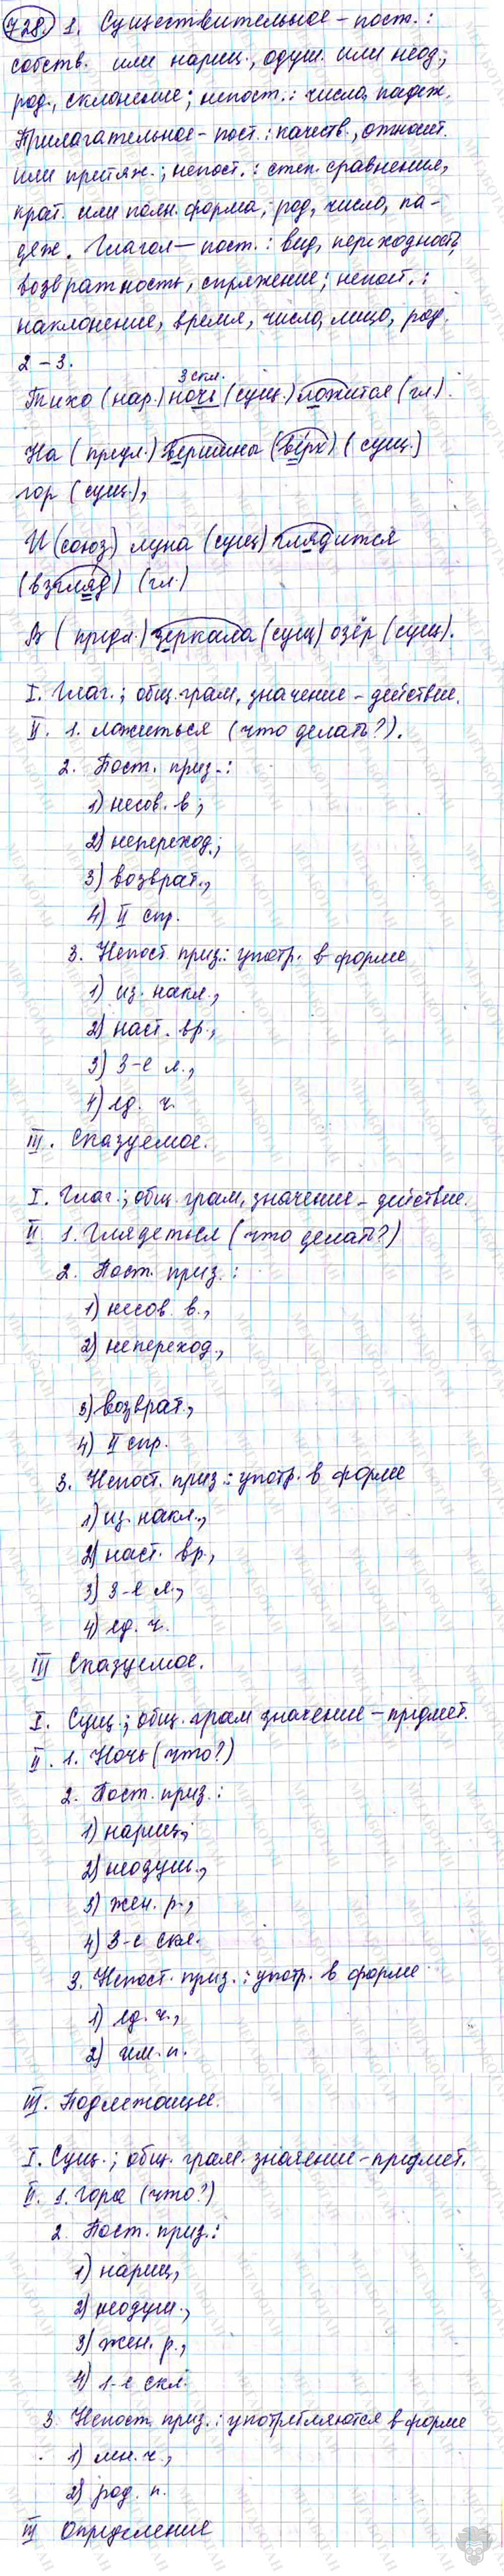 728. 1. Существительное – пост.:
собств. или нариц., одуш. или неод.;
род, склонение; непост.: число, падеж.
Прилагательное – пост.: качеств., относит.
или притяж.; непост.: степ. сравнения,
крат. или полн. форма, род, число, па-
деж. Глагол – пост.: вид, переходность,
возвратность, спряжение; непост.:
наклонение, время, число, лицо, род.
2 – 3.
3 скл.
Тихо (нар.) ночь (сущ.) ложится (гл.)
На (предл.) вершины (верх) (сущ.)
гор (сущ.),
И (союз) луна (сущ) глядится
(взгляд) (гл.)
В (предл.) зеркала (сущ) озёр (сущ).
I. Глаг.; общ. грам. значение – действие.
II. 1. ложиться (что делать?).
2. Пост. приз.:
1) несов. в.;
2) непереход.;
3) возврат.,
4) II спр.
3. Непост. приз.: употр. в форме
1) из. накл.,
2) наст. вр.,
3) 3-е л.,
4) ед. ч.
III. Сказуемое.
I. Глаг.; общ. грам. значение – действие.
II 1. Глядеться (что делать?)
2. Пост. приз.:
1) несов. в.,
2) непереход.,
3) возврат.,
4) II спр.
3. Непост. приз.: употр. в форме
1) из. накл.,
2) наст. вр.,
3) 3-е л.,
4) ед. ч.
III Сказуемое.
I. Сущ.; общ. грам значение – предмет.
II. 1. Ночь (что?)
2. Пост. приз.:
1) нариц.,
2) неодуш.,
3) жен. р.,
4) 3-е скл.
3. Непост. приз.: употр. в форме
1) ед. ч.,
2) им. п.
III. Подлежащее.
I. Сущ.; общ. грам. значение – предмет.
II. 1. Гора (что?)
2. Пост. приз.:
1) нариц,
2) неодуш.,
3) жен. р.,
4) 1-е скл.
3. Непост. приз.: употребляются в форме
1) мн. ч.,
2) род. п.
III Определение